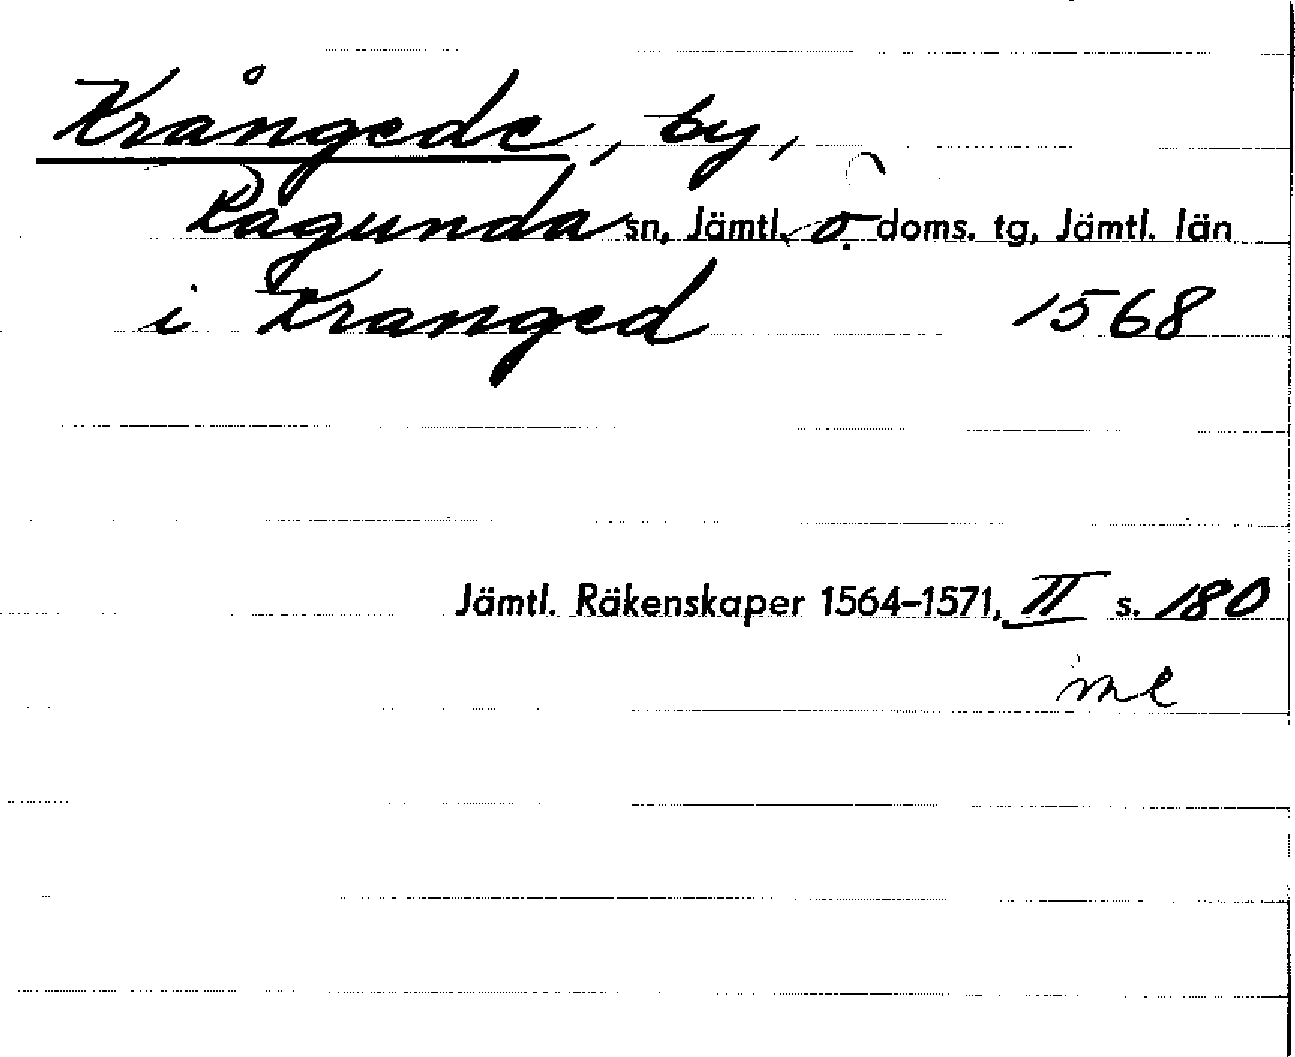 Krångede, by,
Ragunda sn, Jämtl. ö. doms. tg, Jämtl. län
i Kranged 1568
Jämtl. Räkenskaper 1564–1571, II s. 180